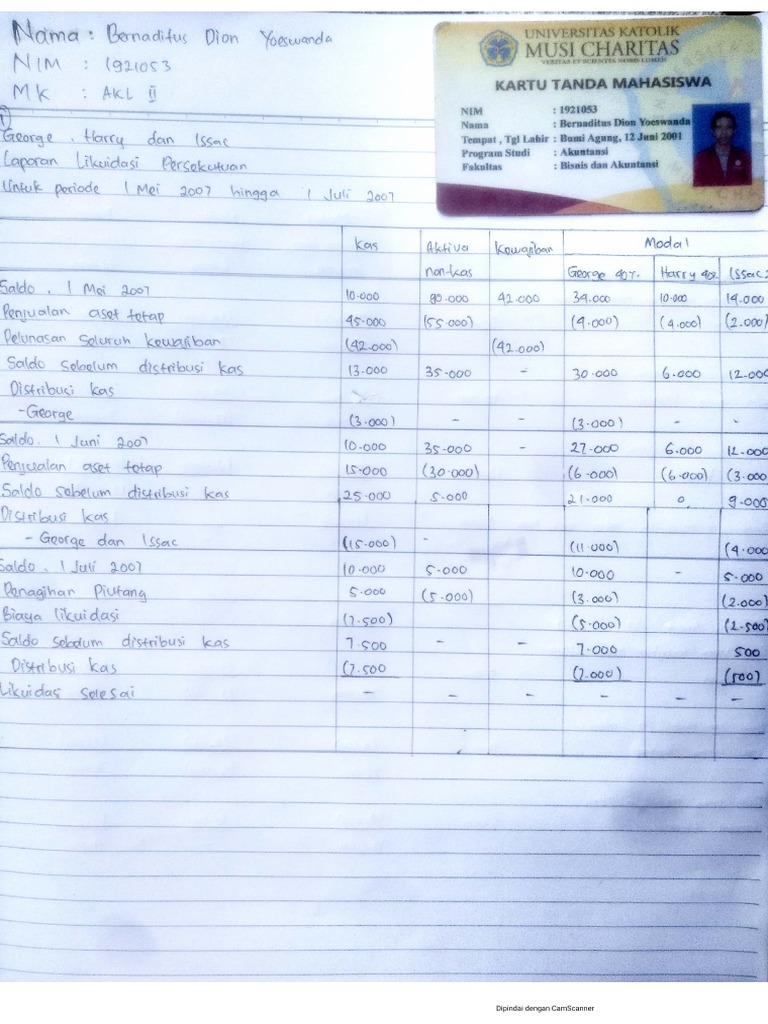 Nama : Bernaditus Dion Yoeswanda
NIM : 1921053
MK : AKL II
UNIVERSITAS KATOLIK
MUSI CHARITAS
VERITAS ET SCIENTIA NOBIS LUMEN
KARTU TANDA MAHASISWA
NIM : 1921053
Nama : Bernaditus Dion Yoeswanda
Tempat , Tgl Lahir : Bumi Agung, 12 Juni 2001
Program Studi : Akuntansi
Fakultas : Bisnis dan Akuntansi
1
George , Harry dan Issac
Laporan Likuidasi Persekutuan
Untuk periode 1 Mei 2007 hingga 1 Juli 2007
Kas Aktiva Kewajiban Modal
non-kas George 40%. Harry 40%. Issac 2
Saldo , 1 Mei 2007 10.000 90.000 42.000 34.000 10.000 14.000
Penjualan aset tetap 45.000 (55.000) (4.000) (4.000) (2.000)
Pelunasan seluruh kewajiban (42.000) (42.000)
Saldo sebelum distribusi kas 13.000 35.000 - 30.000 6.000 12.000
Distribusi kas
-George (3.000) - - (3.000) - -
Saldo. 1 Juni 2007 10.000 35.000 - 27.000 6.000 12.000
Penjualan aset tetap 15.000 (30.000) (6.000) (6.000) (3.000
Saldo sebelum distribusi kas 25.000 5.000 21.000 0 9.000
Distribusi kas
- George dan Issac (15.000) - (11.000) (4.000
Saldo , 1 Juli 2007 10.000 5.000 10.000 - 5.000
Penagihan Piutang 5.000 (5.000) (3.000) (2.000)
Biaya likuidasi (7.500) (5.000) (2.500)
Saldo sebelum distribusi kas 7.500 - - 7.000 500
Distribusi Kas (7.500 (7.000) (500)
Likuidas selesai - - - - - -
Dipindai dengan CamScanner